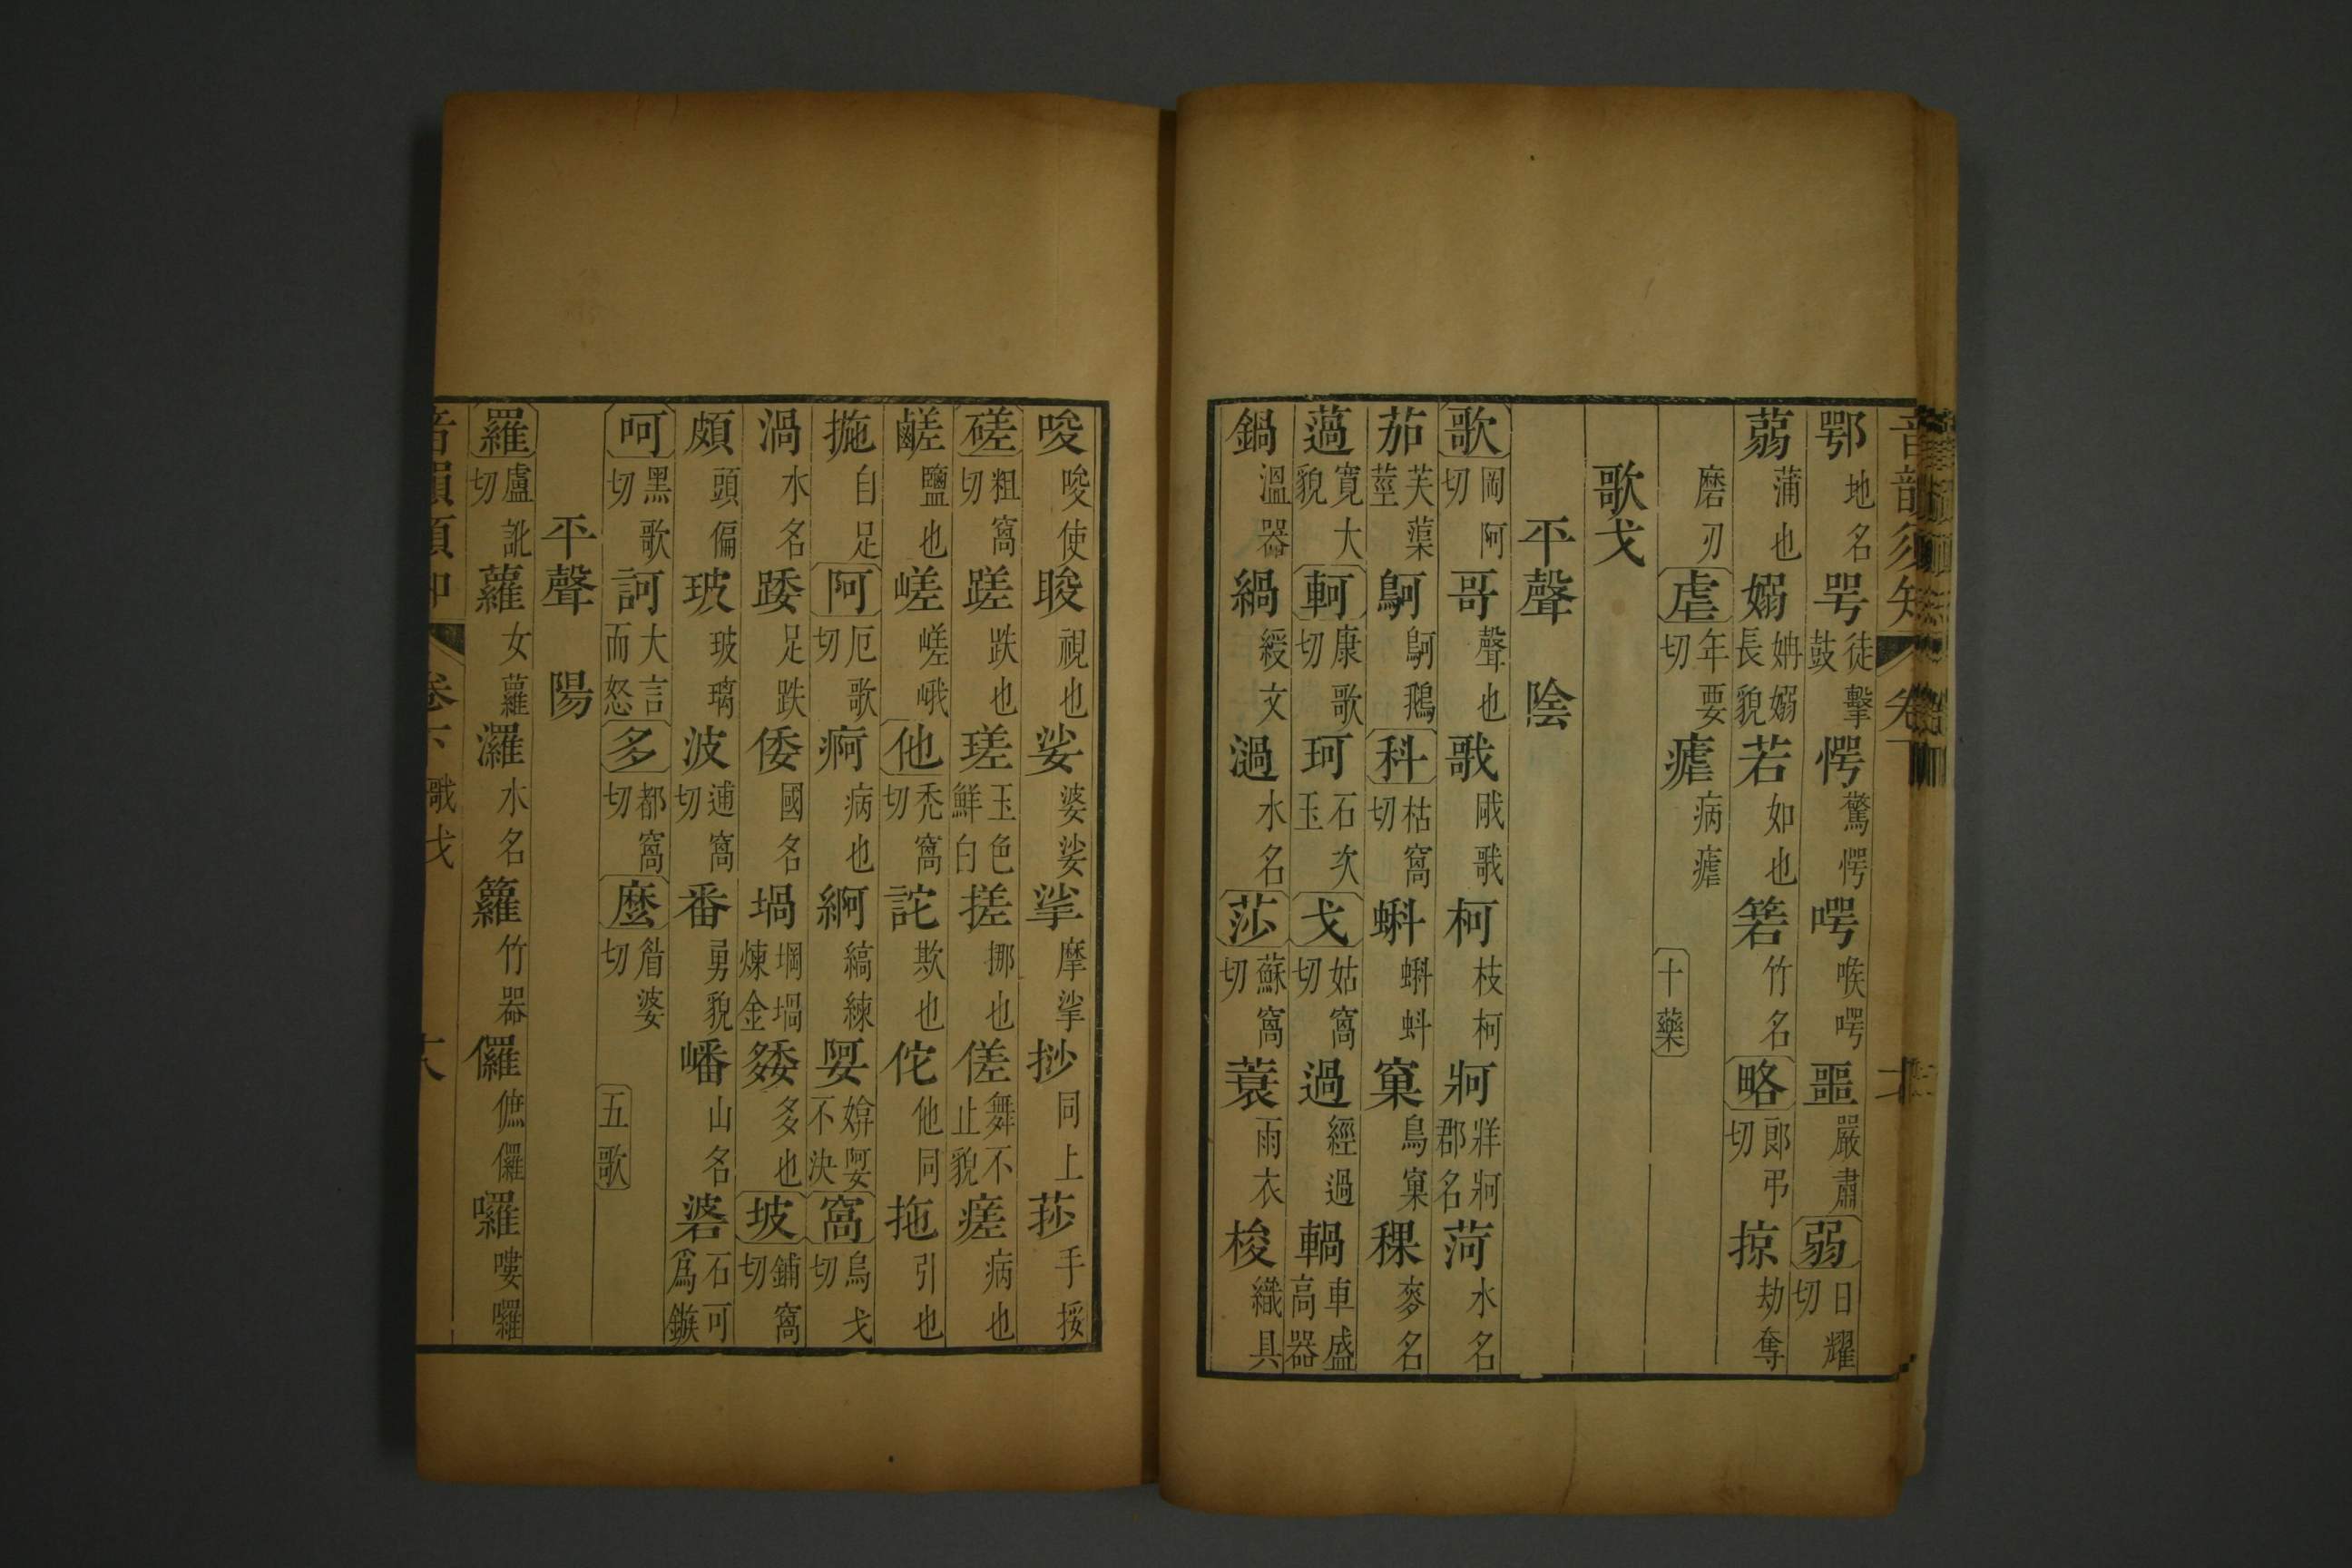 音韻須知 卷下
鄂地名咢徒擊鼓愕驚愕㗁喉㗁噩嚴肅弱日耀切
蒻蒲也嫋姌嫋長貌若如也箬竹名略郎弔切掠劫奪
磨刃虐年要切瘧病瘧 十藥
歌戈
平聲 陰
歌岡阿切哥聲也歌柯枝柯牁牂牁郡名菏水名
茄芙蕖莖鴚鴚鵝科枯窩切蝌蝌蚪窠鳥窠稞麥名
薖寬大貌軻康歌切珂石次玉戈姑窩切過經過輠車盛高器
鍋溫器緺綬文濄水名莎蘇窩切蓑雨衣梭織具
唆唆使睃視也娑婆娑挲摩挲挱同上莏手挼
磋粗窩切蹉跌也瑳玉色鮮白搓挪也傞舞不止貌瘥病也
鹺鹽也嵯嵯峨他禿窩切詫欺也佗他同拖引也
拖自足阿厄歌切痾病也綱縞練娿媕娿不決窩烏戈切
渦水名踒足跌倭國名堝坩堝煉金㛂多也坡鋪窩切
頗頭偏玻玻璃波逋窩切番勇貌嶓山名碆石可爲鏃
呵黑歌切訶大言而怒多都窩切麼眉婆切 五歌
平聲 陽
羅盧訛切蘿女蘿㶅水名籮竹器儸㑩儸囉嘍囉
音韻須知 卷下 歌戈 六